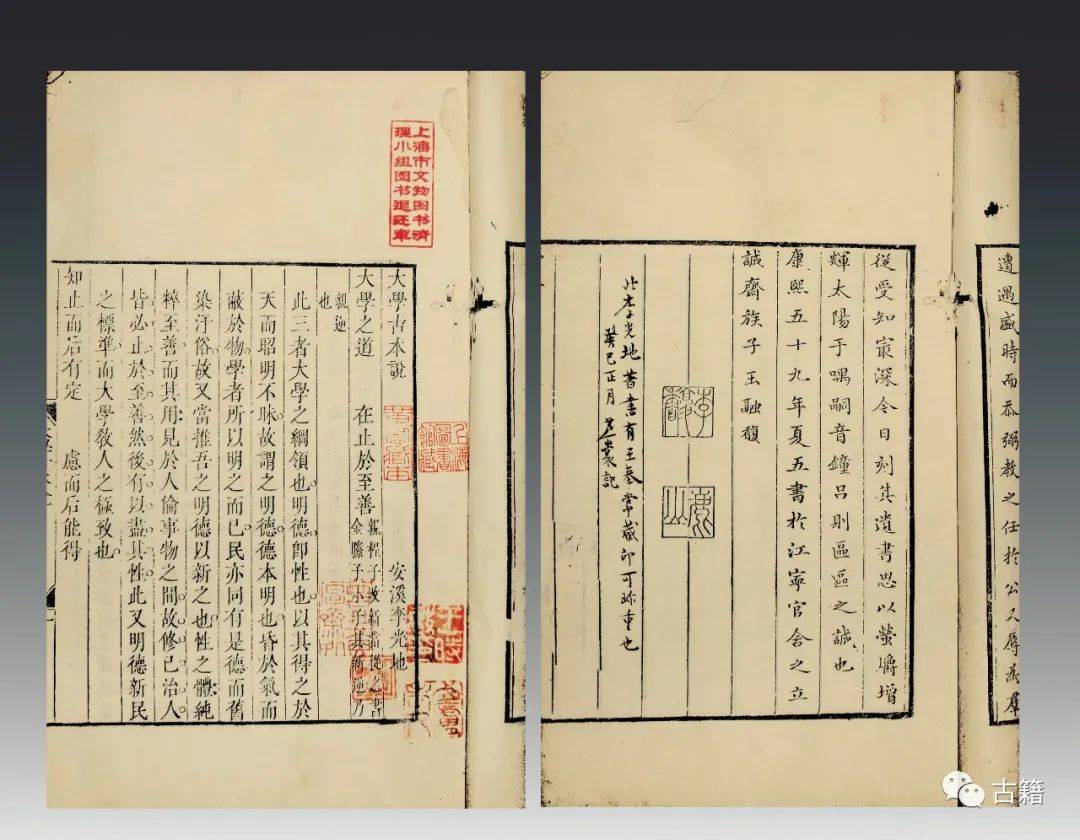 遭遇盛時而忝弼教之任於公又辱為羣
從受知㝡深今日刻其遺書思以螢爝增
輝太陽于喁嗣音鐘呂則區區之誠也
康熙五十九年夏五書於江寧官舍之立
誠齋族子玉融馥
李馥
鹿山
此李光地著書有王奉常藏印可珍重也
癸巳正月
上海市文物图书清
理小组图书退还章
上海圖書館藏
大學古本說 安溪李光地
大學之道 在止於至善
親程子改新當從之書
金縢予小子其新逆乃
親逆
也
此三者大學之綱領也明德卽性也以其得之於
天而昭明不昧故謂之明德德本明也昏於氣而
蔽於物學者所以明之而已民亦同有是德而舊
染汙俗故又當推吾之明德以新之也性之體純
粹至善而其用見於人倫事物之間故修已治人
皆必止於至善然後有以盡其性此又明德新民
之標準而大學敎人之極致也
知止而后有定 慮而后能得
古籍